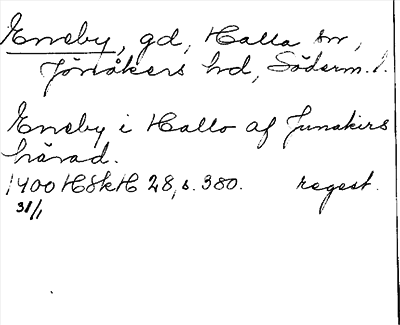 Eneby, gd, Halla sn,
Jönåkers hd, Söderm. l.
Eneby i Hallo af Junakirs
härad.
1400 HSkH 28, s. 380. regest.
31/1